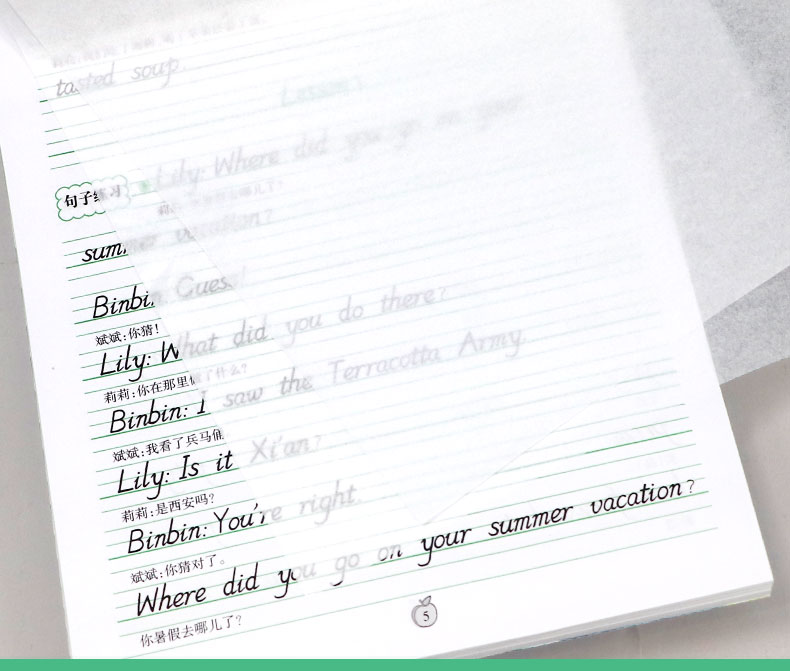 tasted soup.
Lesson 1
句子练习
Lily: Where did you go on your
summer vacation?
Binbin: Guess!
斌斌:你猜!
Lily: What did you do there?
莉莉:你在那里做了什么?
Binbin: I saw the Terracotta Army.
斌斌:我看了兵马俑
Lily: Is it Xi'an?
莉莉:是西安吗?
Binbin: You're right.
斌斌:你猜对了。
Where did you go on your summer vacation?
你暑假去哪儿了?
5